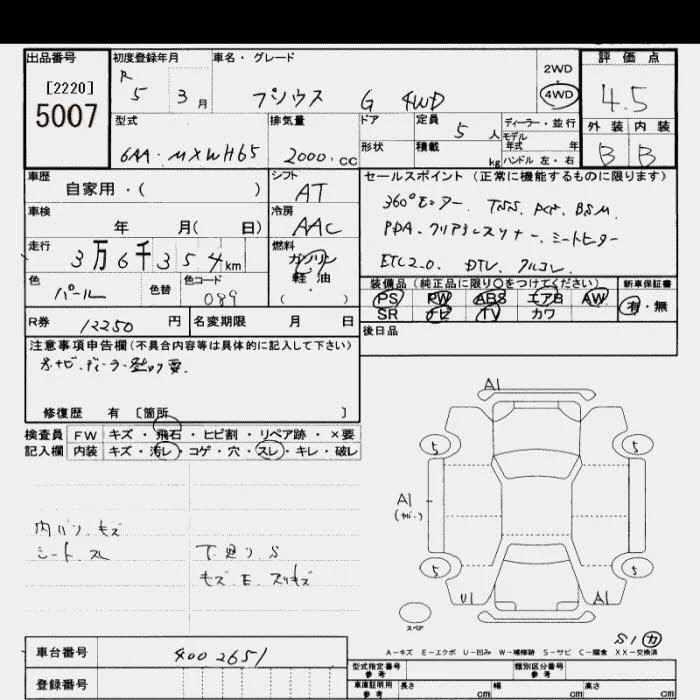 出品番号 初度登録年月 車名・グレード 評価点
[2220]
5007
R 5 3月 プリウス G 4WD
2WD
4WD
4.5
型式 排気量 ドア 定員 5人 ディーラー・並行
モデル
年式 年
外装 内装
6AA-MXWH65 2000.cc 形状 積載 kg ハンドル 左・右 B B
車歴 シフト セールスポイント(正常に機能するものに限ります)
自家用・( ) AT
車検 冷房
年 月( 日) AAC
360°モニター. TSS. PCS. BSM.
PDA. クリアランスソナー. シートヒーター
ETC2.0. DTV.
走行 燃料
3万6千354km
ガソリン
軽・油
( )
色 色替 色コード
パール 089
装備品(純正品に限り○をつけてください) 新車保証書
PS PW ABS エアB AW 有・無
SR ナビ TV カワ
R券 12250円 名変期限 月 日
後日品
注意事項申告欄(不具合内容等は具体的に記入して下さい)
ナビ.ディーラー登録要.
修復歴 有 [箇所 ]
検査員 FW キズ・飛石・ヒビ割・リペア跡・×要
記入欄 内装 キズ・汚レ・コゲ・穴・スレ・キレ・破レ
内バン.キズ
シート.スレ
下廻り S
キズ.E.スリキズ
A1
5 5
A1
(カバー)
5 5
U1 A1
スペア
S1 カ
A-キズ E-エクボ U-凹み W-補修跡 S-サビ C-腐食 XX-交換済
車台番号 4002651
登録番号
型式指定番号
参考
類別区分番号
参考
車庫証明用
参考
長さ cm 幅 cm 高さ cm